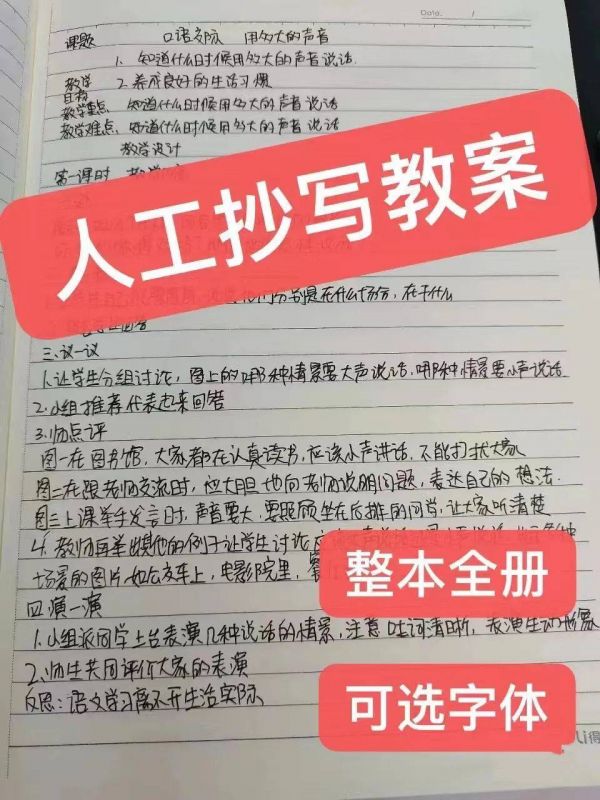 Date. /
课题 口语交际 用多大的声音
1. 知道什么时候用多大的声音说话.
教学目标 2. 养成良好的生活习惯
教学重点. 知道什么时候用多大的声音说话
教学难点. 知道什么时候用多大的声音说话
教学设计
第一课时
人工抄写教案
分别是在什么场合, 在干什么
三. 议一议
1. 让学生分组讨论, 图上的哪种情景要大声说话, 哪种情景要小声说话
2. 小组推荐代表起来回答
3. 师点评
图一在图书馆, 大家都在认真读书, 应该小声讲话, 不能打扰大家
图二在跟老师交流时, 应大胆地向老师说明问题, 表达自己的想法.
图三上课举手发言时, 声音要大, 要照顾坐在后排的同学, 让大家听清楚
4. 教师再举出其他的例子让学生讨论
场景的图片, 如公交车上, 电影院里,
整本全册
四. 演一演
1. 小组派同学上台表演几种说话的情景, 注意吐词清晰, 表演生动形象
2. 师生共同评价大家的表演
可选字体
反思: 语文学习离不开生活实际